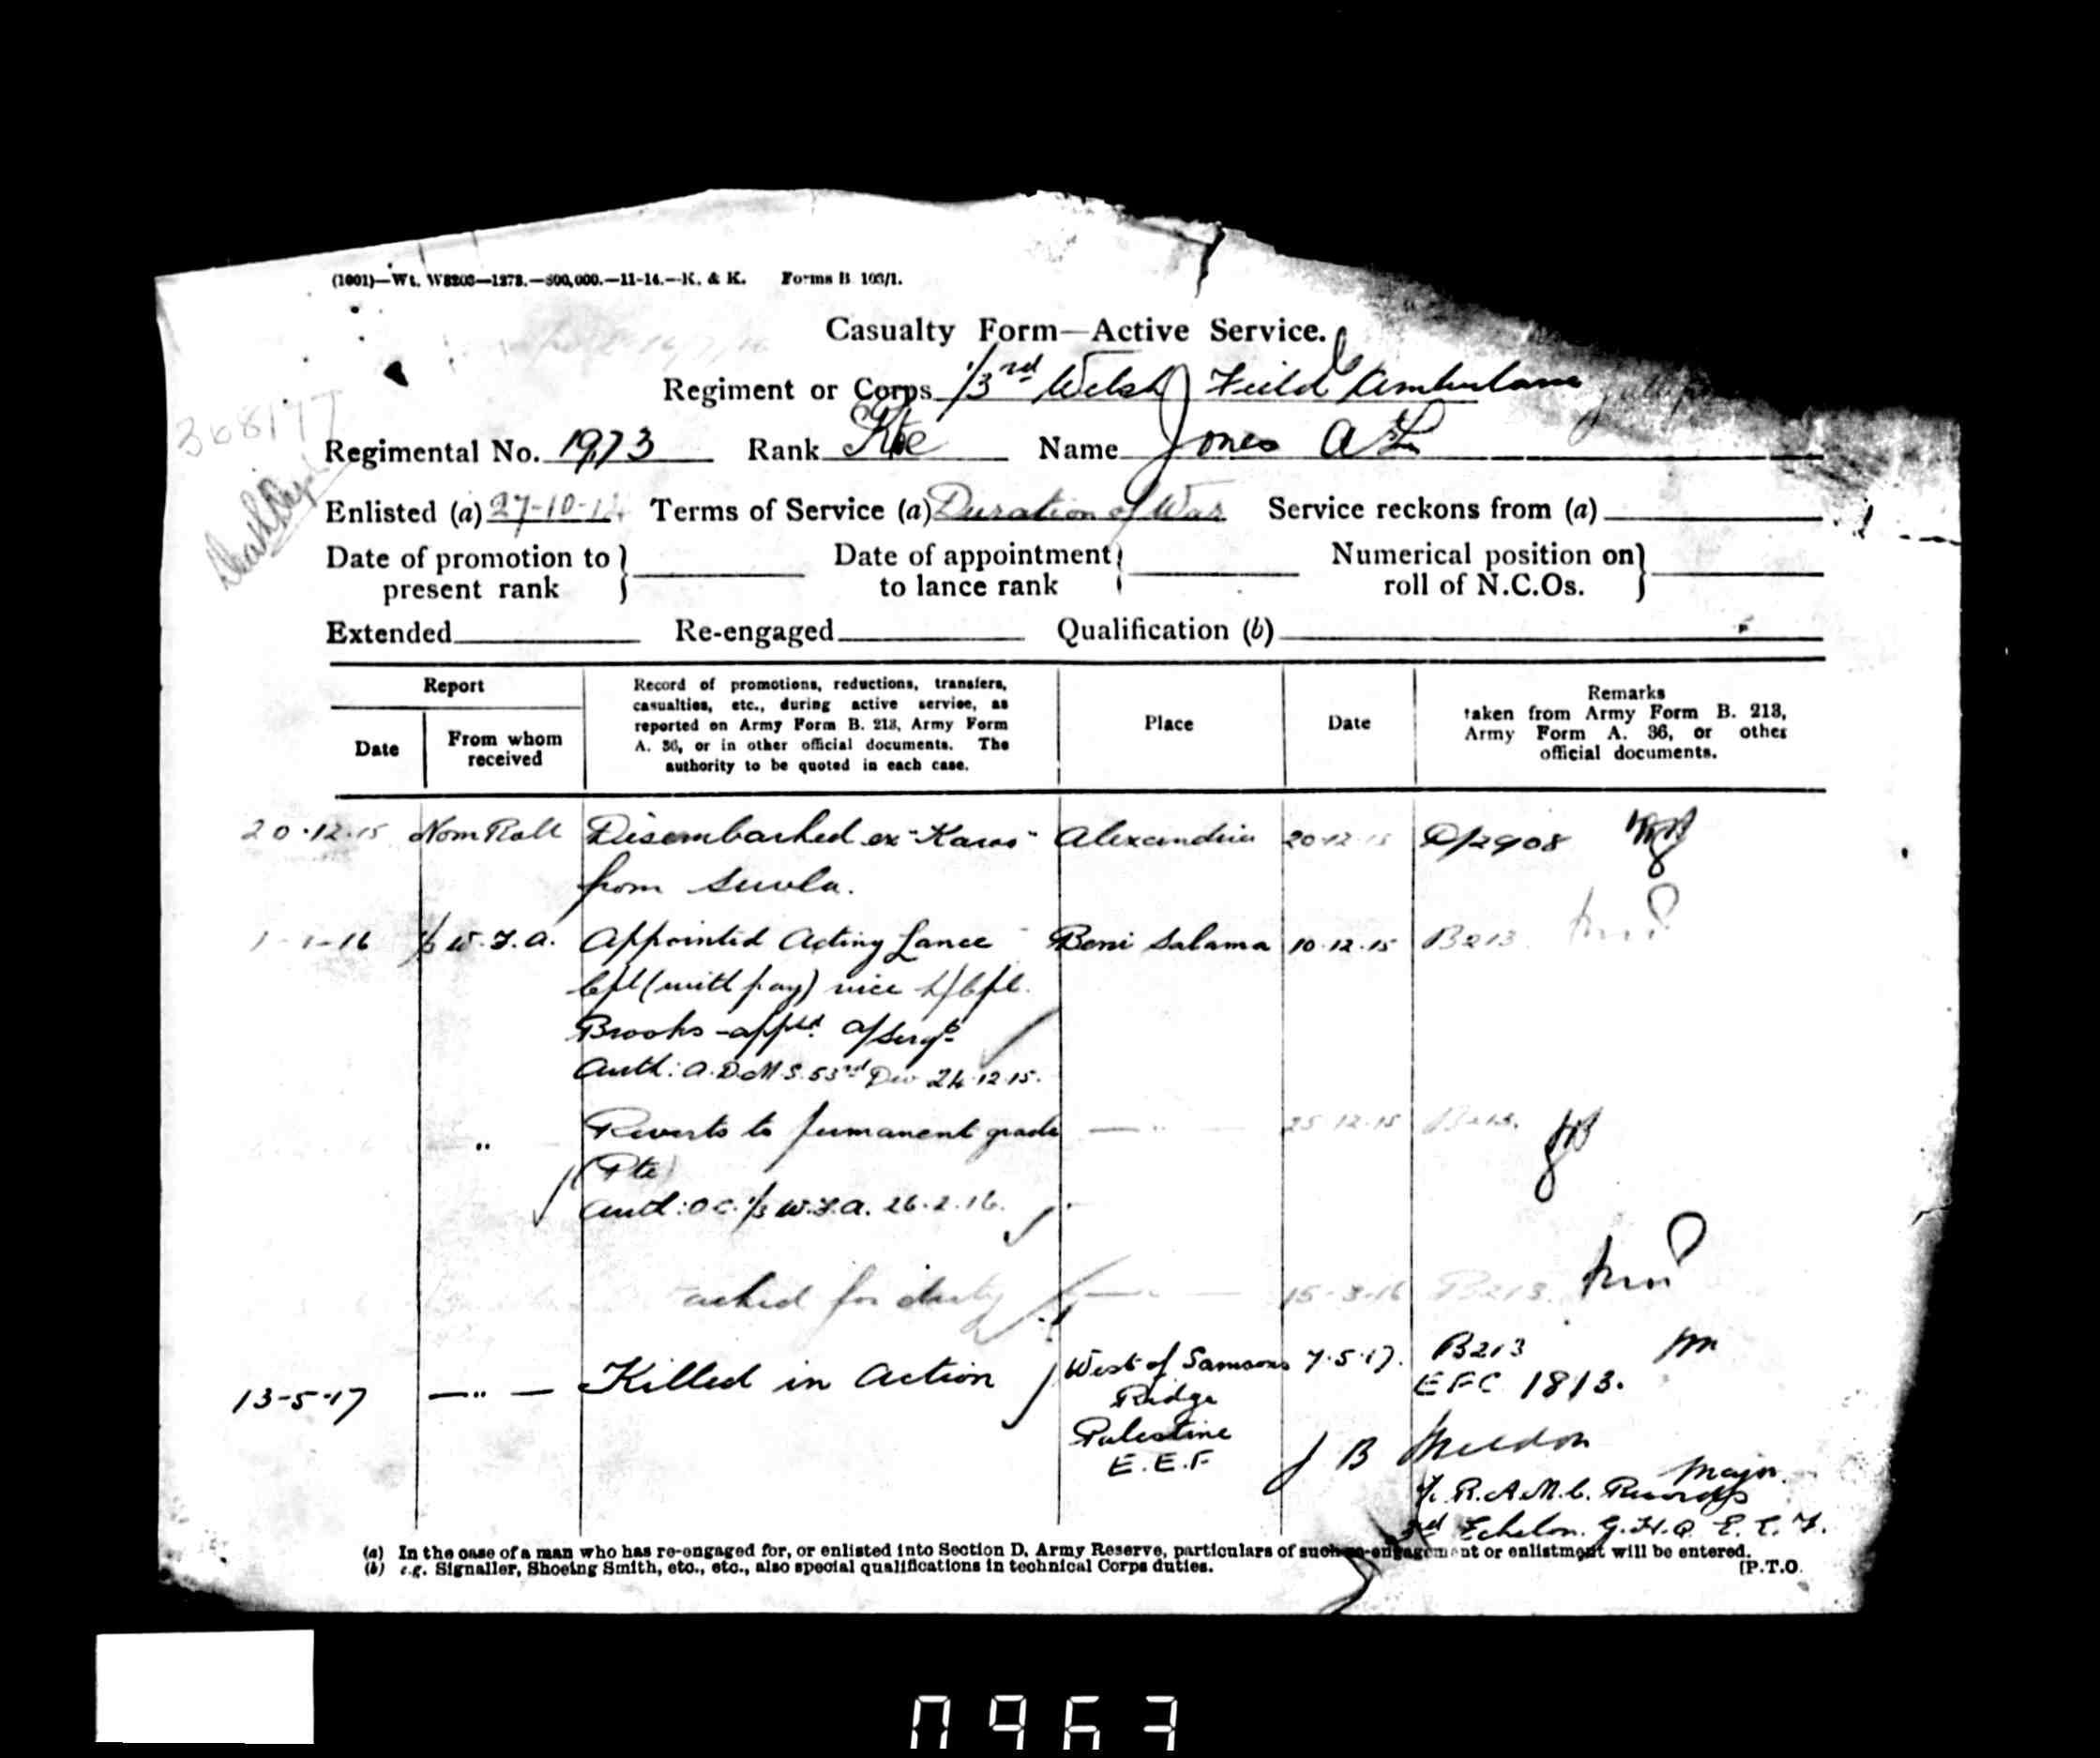 (1001)—Wt. W8203—1278.—500,000.—11-14.—K. & K. Forms B 103/1.
Casualty Form—Active Service.
Regiment or Corps 1/3rd Welsh Field Ambulance
368177
Regimental No. 1973 Rank Pte Name Jones A L
Enlisted (a) 27-10-14 Terms of Service (a) Duration of War Service reckons from (a)
Date of promotion to present rank } Date of appointment to lance rank } Numerical position on roll of N.C.Os. }
Extended Re-engaged Qualification (b)
Report
Date
From whom received
Record of promotions, reductions, transfers,
casualties, etc., during active service, as
reported on Army Form B. 213, Army Form
A. 36, or in other official documents. The
authority to be quoted in each case.
Place
Date
Remarks
taken from Army Form B. 213,
Army Form A. 36, or other
official documents.
20.12.15 Nom Roll Disembarked ex "Karoa" Alexandria 20.12.15 D/2908
from Suvla.
1-1-16 1/3 W.F.A. Appointed Acting Lance Beni Salama 10.12.15 B213
Cpl (with pay) vice L/Cpl.
Brooks - apptd A/Sergt
Auth: A.D.M.S. 53rd Div 24.12.15.
" Reverts to permanent grade — " — 25.12.15 B213.
(Pte)
Auth: O.C. 1/3 W.F.A. 26.2.16.
ached for duty 15-3-16 B213.
13-5-17 — " — Killed in Action West of Samsons 7.5.17. B213
Ridge EFC 1813.
Palestine
E.E.F
J B
Major
R.A.M.C. Records
3rd Echelon. G.H.Q. E.E.F.
(a) In the case of a man who has re-engaged for, or enlisted into Section D, Army Reserve, particulars of such re-engagement or enlistment will be entered.
(b) e.g. Signaller, Shoeing Smith, etc., etc., also special qualifications in technical Corps duties. [P.T.O.